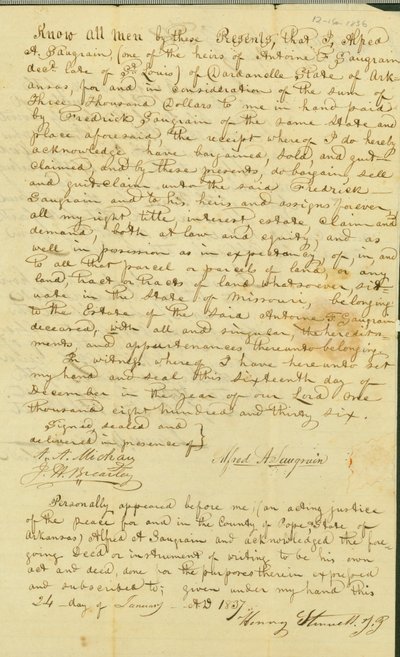 12-16-1836
Know all men by these Presents, that I, Alfred
A. Saugrain, (one of the heirs of Antoine F. Saugrain
decd. late of St. Louis) of Dardanelle State of Ark-
ansas, for and in consideration of the sum of
three thousand Dollars to me in hand paid
by Fredrick Saugrain of the same State and
place aforesaid the receipt whereof I do hereby
acknowledge have bargained, sold, and quit-
claimed and by these presents, do bargain, sell
and quitclaim unto the said Fredrick
Saugrain and to his heirs and assigns forever,
all my right title, interest estate claim and
demand, both at law and equity, and as
well in possession as in expectancy, of, in, and
to all that parcel or parcels of land, or any
land, tract or tracts of land whatsoever, sit-
uate in the State of Missouri, belonging
to the Estate of the said Antoine F. Saugrain
deceased, with all and singular, the heredita-
ments, and appurtenances thereunto belonging.
In witness whereof I have hereunto set
my hand and seal this sixteenth day of
December in the year of our Lord one
thousand eight hundred and thirty six.
Signed, sealed and
delivered in presence of }
Alfred A Saugrain
J. H. Brearley
Personally appeared before me, (an acting justice
of the peace for and in the County of Pope, State of
Arkansas) Alfred A Saugrain and acknowledged the fore-
going Deed or instrument of writing to be his own
act and deed, done for the purposes therein expressed
and subscribed to; given under my hand this
24 day of January AD 1837.
Henry Stinnett J.P